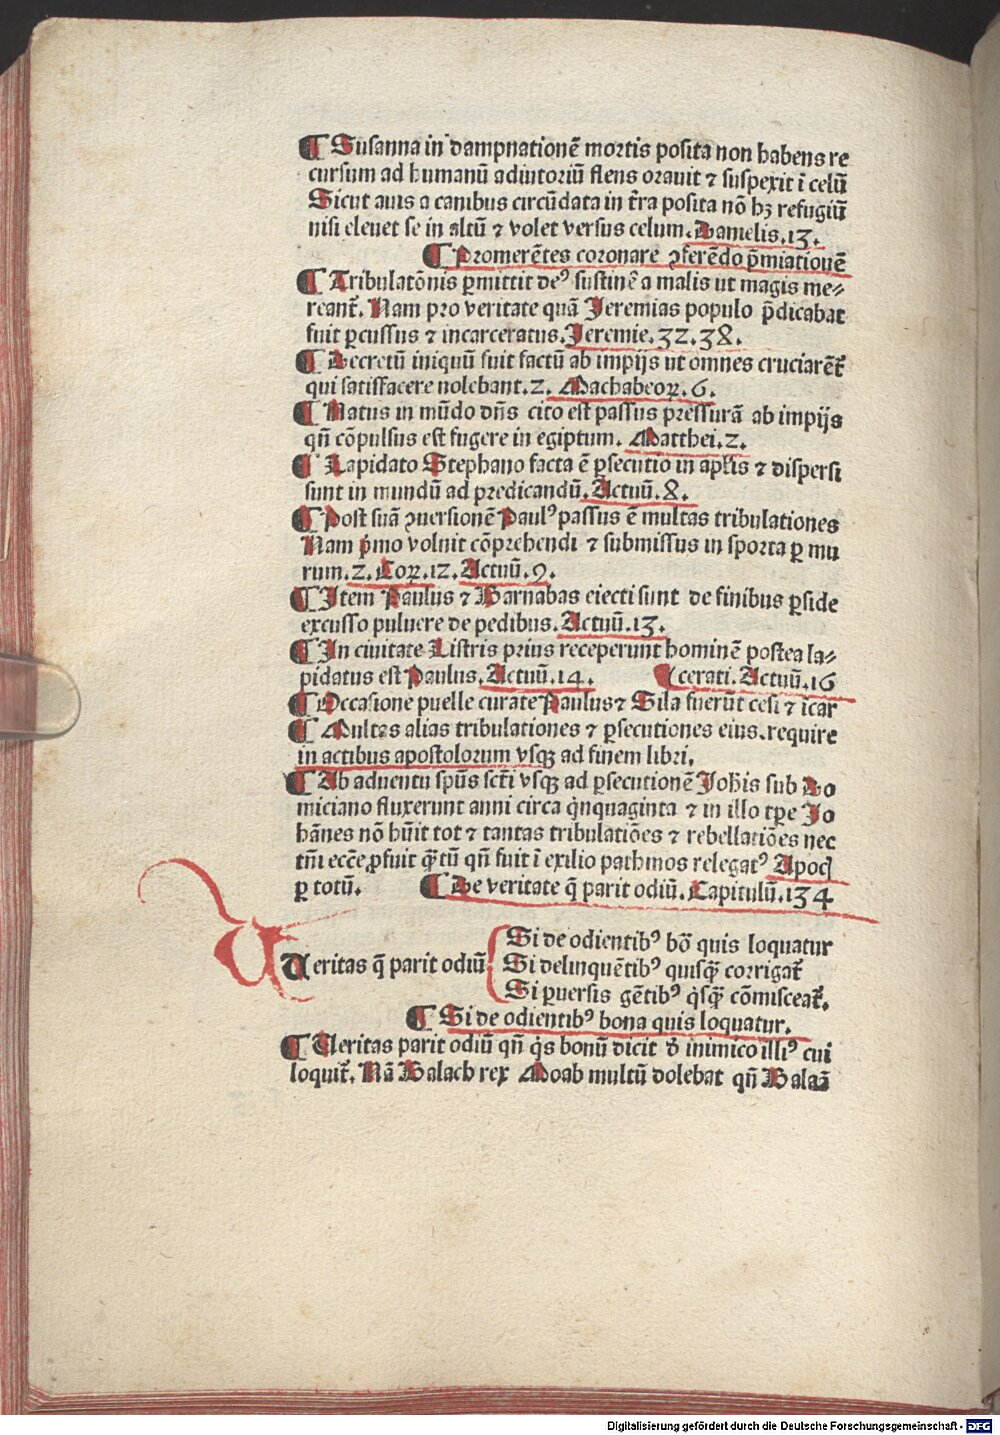 ¶ Susanna in dampnationē mortis posita non habens re
cursum ad humanū adiutoriū flens orauit ⁊ suspexit ī celū
Sicut auis a canibus circūdata in t̄ra posita nō hꝫ refugiū
nisi eleuet se in altū ⁊ volet versus celum. Danielis. 13.
¶ Promerētes coronare ꝯferēdo p̄miationē
¶ Tribulatōnis ꝑmittit deꝰ sustinē a malis ut magis me⸗
reant̄. Nam pro veritate quā Jeremias populo p̄dicabat
fuit ꝑcussus ⁊ incarceratus. Jeremie. 32. 38.
¶ Decretū iniquū fuit factū ab impijs ut omnes cruciarēt̄
qui satisfacere nolebant. 2. Machabeoꝝ. 6.
¶ Natus in mūdo dn̄s cito est passus pressurā ab impijs
qn̄ cōpulsus est fugere in egiptum. Matthei. 2.
¶ Lapidato Stephano facta ē ꝑsecutio in apl̄is ⁊ dispersi
sunt in mundū ad predicandū. Actuū. 8.
¶ Post suā ꝯuersionē Paulꝰ passus ē multas tribulationes
Nam p̄mo voluit cōprehendi ⁊ submissus in sporta ꝑ mu
rum. 2. Coꝝ. 12. Actuū. 9.
¶ Item Paulus ⁊ Barnabas eiecti sunt de finibus ꝑside
excusso puluere de pedibus. Actuū. 13.
¶ In ciuitate Listris prius receperunt hominē postea la⸗
pidatus est Paulus. Actuū. 14. (cerati. Actuū. 16
¶ Occasione puelle curate Paulus ⁊ Sila fuerūt cesi ⁊ īcar
¶ Multas alias tribulationes ⁊ ꝑsecutiones eius. require
in actibus apostolorum vsqꝫ ad finem libri.
¶ Ab aduentu spūs sct̄i vsqꝫ ad ꝑsecutionē Joh̄is sub Do
miciano fluxerunt anni circa q̇nquaginta ⁊ in illo tꝑe Jo
hānes nō hūit tot ⁊ tantas tribulatiōes ⁊ rebellatiōes nec
tn̄ ecc̄e ꝓfuit q̄tū qn̄ fuit ī exilio pathmos relegatꝰ Apoc̄
ꝑ totū. ¶ De veritate q̄ parit odiū. Capitulū. 134
Ueritas q̄ parit odiū
Si de odientibꝰ bō quis loquatur
Si delinquētibꝰ quisq̄ corrigat̄
Si ꝑuersis gētibꝰ q̇sq̄ cōmisceat̄.
¶ Si de odientibꝰ bona quis loquatur.
¶ Ueritas parit odiū qn̄ q̇s bonū dicit d̄ inimico illiꝰ cui
loquit̄. Nā Balach rex Moab multū dolebat qn̄ Balaā
Digitalisierung gefördert durch die Deutsche Forschungsgemeinschaft - DFG